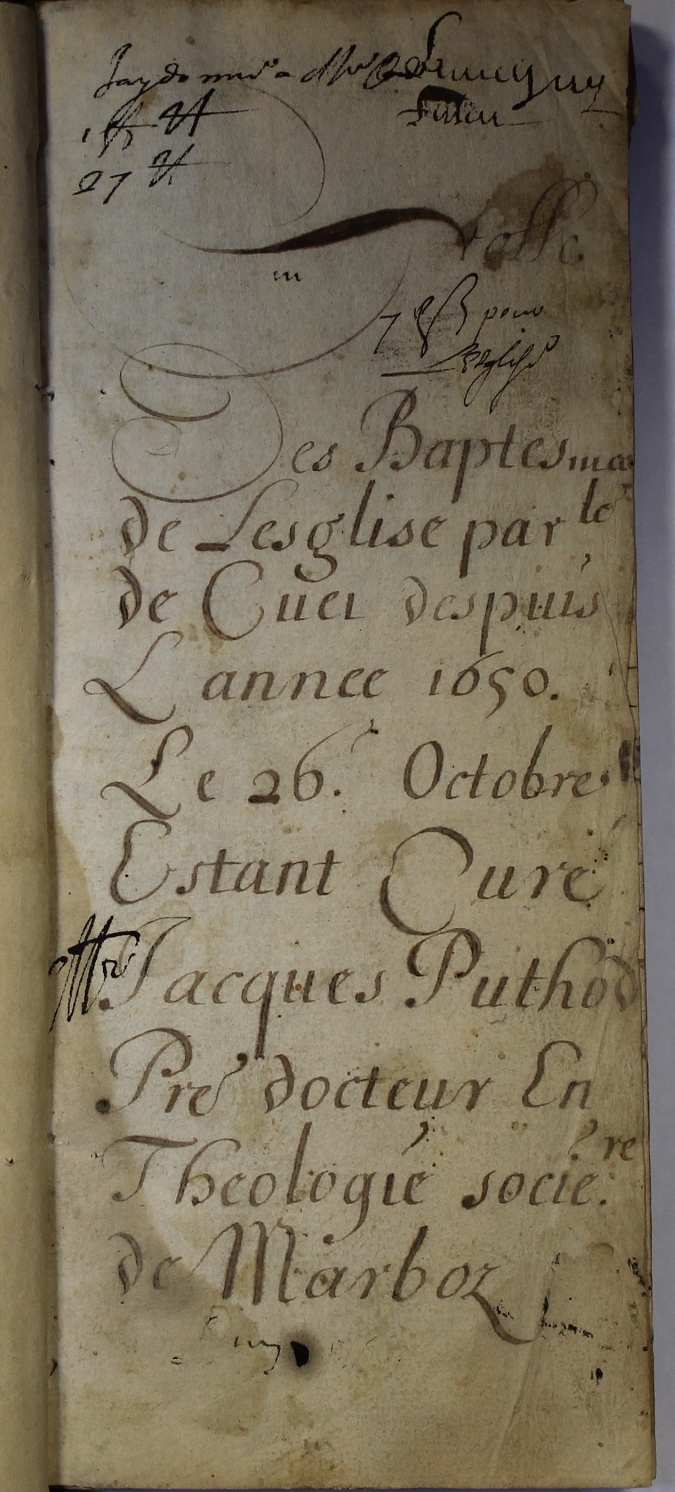 Jay donné a Mr
27 ₶
pour
Lesglise
Des Baptesmes
de Lesglise par.le
de Cuei despuis
L annee 1650.
Le 26. Octobre
Estant Curé
Mre Jacques Puthod
Pre docteur En
Theologie socie.re
de Marboz